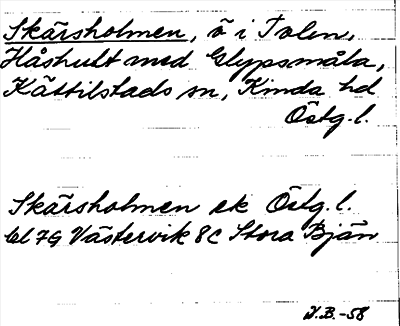 Skärsholmen, ö i Tolen,
Håshult med Glypsmåla,
Kättilstads sn, Kinda hd
Östg. l.
Skärsholmen ek Östg. l.
bl 7G Västervik 8C Stora Bjän
V.B.-58